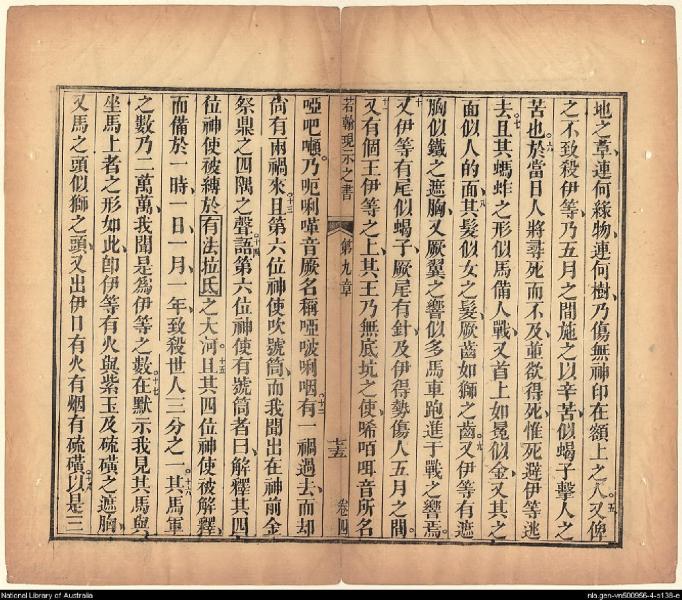 地之草連何綠物連何樹乃傷無神印在額上之人又俾
之不致殺伊等乃五月之間施之以辛苦似蝎子擊人之
苦也於當日人將尋死而不及並欲得死惟死避伊等逃
去且其蝻蚱之形似馬備人戰又首上如冕似金又其之
面似人的面其髮似女之髮厥齒如獅之齒又伊等有遮
胸似鐵之遮胸又厥翼之響似多馬車跑進于戰之響焉
又伊等有尾似蝎子厥尾有針及伊得勢傷人五月之間
又有個王伊等之上其王乃無底坑之使唏咟咡音所名
若翰現示之書 第九章 七十五 卷四
啞吧𡃤乃呃唎嗶音厥名稱啞啵唎咽有一禍過去而却
尙有兩禍來且第六位神使吹號筒而我聞出在神前金
祭鼎之四隅之聲語第六位神使有號筒者曰解釋其四
位神使被縛於有法拉氏之大河且其四位神使被解釋
而備於一時一日一月一年致殺世人三分之一其馬軍
之數乃二萬萬我聞是爲伊等之數在默示我見其馬與
坐馬上者之形如此卽伊等有火與紫玉及硫磺之遮胸
又馬之頭似獅之頭又出伊口有火有烟有硫磺以是三
National Library of Australia
nla.gen-vn500956-4-s138-e